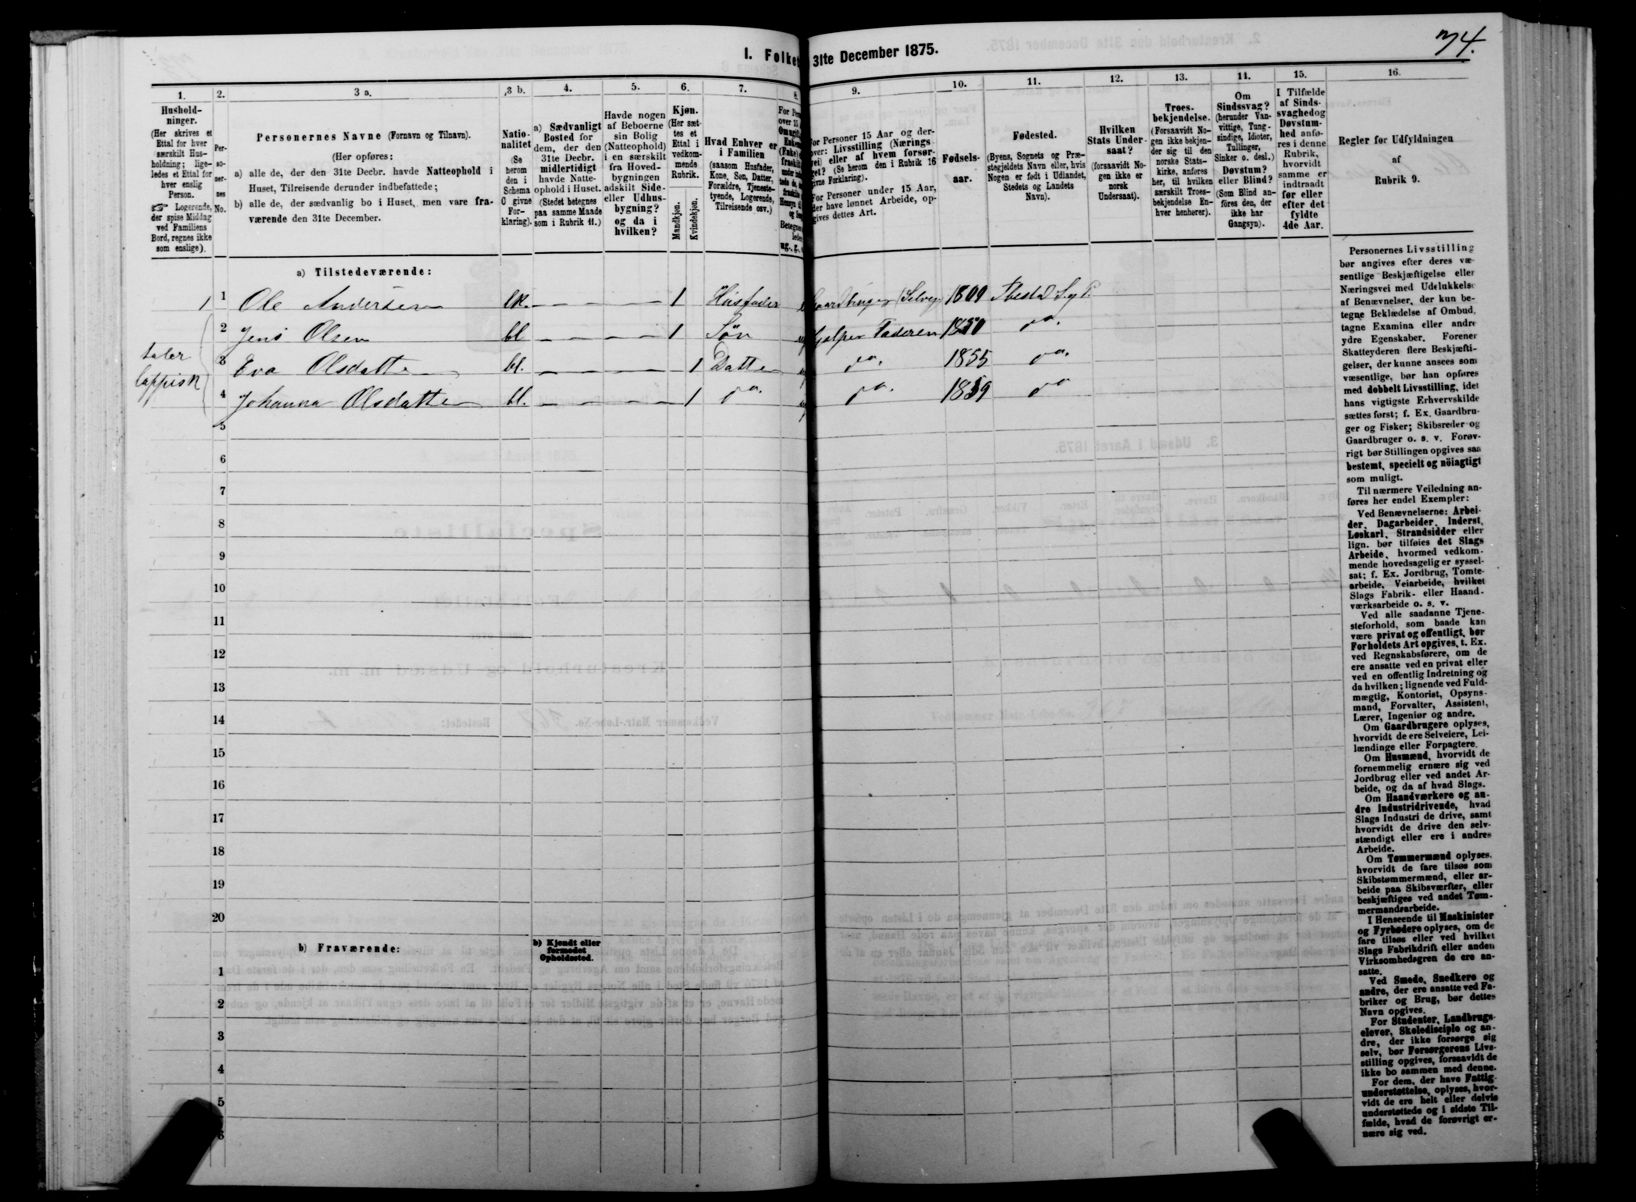 I. Folke
31te December 1875.
74.
1.
2.
3 a.
3 b.
4.
5.
6.
7.
8.
9.
10.
11.
12.
13.
14.
15.
16.
Hushold-
ninger.
(Her skrives et
Ettal for hver
særskilt Hus-
holdning; lige-
ledes et Ettal for
hver enslig
Person.
Logerende,
der spise Middag
ved Familiens
Bord, regnes ikke
som enslige).
Per-
so-
ner-
nes
No.
Personernes Navne (Fornavn og Tilnavn).
(Her opføres:
a) alle de, der den 31te Decbr. havde Natteophold i
Huset, Tilreisende derunder indbefattede;
b) alle de, der sædvanlig bo i Huset, men vare fra-
værende den 31te December.
Natio-
nalitet
(Se
herom
den i
Schema
C givne
For-
klaring).
a) Sædvanligt
Bosted for
dem, der den
31te Decbr.
midlertidigt
havde Natte-
ophold i Huset.
(Stedet betegnes
paa samme Maade
som i Rubrik 11.)
Havde nogen
af Beboerne
sin Bolig
(Natteophold)
i en særskilt
fra Hoved-
bygningen
adskilt Side-
eller Udhus-
bygning?
og da i
hvilken?
Kjøn.
(Her sæt-
tes et
Ettal i
vedkom-
mende
Rubrik.
Mandkjøn.
Kvindekjøn.
Hvad Enhver er
i Familien
(saasom Husfader,
Kone, Søn, Datter,
Forældre, Tjeneste-
tyende, Logerende,
Tilreisende osv.)
For Personer 15 Aar og der-
over: Livsstilling (Nærings-
vei) eller af hvem forsør-
get? (Se herom den i Rubrik 16
givne Forklaring).
For Personer under 15 Aar,
der have lønnet Arbeide, op-
gives dettes Art.
Fødsels-
aar.
Fødested.
(Byens, Sognets og Præ-
stegjeldets Navn eller, hvis
Nogen er født i Udlandet,
Stedets og Landets
Navn).
Hvilken
Stats Under-
saat?
(forsaavidt No-
gen ikke er
norsk
Undersaat).
Troes-
bekjendelse.
(Forsaavidt No-
gen ikke bekjen-
der sig til den
norske Stats-
kirke, anføres
her, til hvilken
særskilt Troes-
bekjendelse En-
hver henhører).
Om
Sindssvag?
(herunder Van-
vittige, Tung-
sindige, Idioter,
Tullinger,
Sinker o. desl.)
Døvstum?
eller Blind?
(Som Blind an-
føres den, der
ikke har
Gangsyn).
I Tilfælde
af Sinds-
svaghedog
Døvstum-
hed anfø-
res i denne
Rubrik,
hvorvidt
samme er
indtraadt
før eller
efter det
fyldte
4de Aar.
Regler for Udfyldningen
af
Rubrik 9.
a) Tilstedeværende:
1 1 Ole Andersen bl. 1 Husfader Gaardbruger (Selvej 1809 Ibestad Sg.
2 Jens Olsen bl 1 Søn hjælper Faderen 1850 do.
taler
lappisk
3 Eva Olsdatter bl. 1 Datter do. 1855 do.
4 Johanna Olsdatter bl. 1 do. do. 1859 do
5
6
7
8
9
10
11
12
13
14
15
16
17
18
19
20
b) Fraværende:
b) Kjendt eller
formodet
Opholdssted.
1
2
3
4
5
6
Personernes Livsstilling
bør angives efter deres væ-
sentlige Beskjæftigelse eller
Næringsvei med Udelukkelse
af Benævnelser, der kun be-
tegne Beklædelse af Ombud,
tagne Examina eller andre
ydre Egenskaber. Forener
Skatteyderen flere Beskjæfti-
gelser, der kunne ansees som
væsentlige, bør han opføres
med dobbelt Livsstilling, idet
hans vigtigste Erhvervskilde
sættes først; f. Ex. Gaardbru-
ger og Fisker; Skibsreder og
Gaardbruger o. s. v. Forøv-
rigt bør Stillingen opgives saa
bestemt, specielt og nöiagtigt
som muligt.
Til nærmere Veiledning an-
føres her endel Exempler:
Ved Benævnelserne: Arbei-
der, Dagarbeider, Inderst,
Løskarl, Strandsidder eller
lign. bør tilføies det Slags
Arbeide, hvormed vedkom-
mende hovedsagelig er syssel-
sat; f. Ex. Jordbrug, Tomte-
arbeide, Veiarbeide, hvilket
Slags Fabrik- eller Haand-
værksarbeide o. s. v.
Ved alle saadanne Tjene-
steforhold, som baade kan
være privat og offentligt, bør
Forholdets Art opgives, t. Ex.
ved Regnskabsførere, om de
ere ansatte ved en privat eller
ved en offentlig Indretning og
da hvilken; lignende ved Fuld-
mægtig, Kontorist, Opsyns-
mand, Forvalter, Assistent,
Lærer, Ingeniør og andre.
Om Gaardbrugere oplyses,
hvorvidt de ere Selveiere, Lei-
lændinge eller Forpagtere.
Om Husmænd, hvorvidt de
fornemmelig ernære sig ved
Jordbrug eller ved andet Ar-
beide, og da af hvad Slags.
Om Haandværkere og an-
dre Industridrivende, hvad
Slags Industri de drive, samt
hvorvidt de drive den selv-
stændigt eller ere i andres
Arbeide.
Om Tømmermænd oplyses,
hvorvidt de fare tilsøs som
Skibstømmermænd, eller ar-
beide paa Skibsværfter, eller
beskjæftiges ved andet Tøm-
mermandsarbeide.
I Henseende til Maskinister
og Fyrbødere oplyses, om de
fare tilsøs eller ved hvilket
Slags Fabrikdrift eller anden
Virksomhedsgren de ere an-
satte.
Ved Smede, Snedkere og
andre, der ere ansatte ved Fa-
briker og Brug, bør dettes
Navn opgives.
For Studenter, Landbrugs-
elever, Skoledisciple og an-
dre, der ikke forsørge sig
selv, bør Forsørgerens Livs-
stilling opgives, forsaavidt de
ikke bo sammen med denne.
For dem, der have Fattig-
understøttelse, oplyses, hvor-
vidt de ere helt eller delvis
understøttede og i sidste Til-
fælde, hvad de forøvrigt er-
nære sig ved.